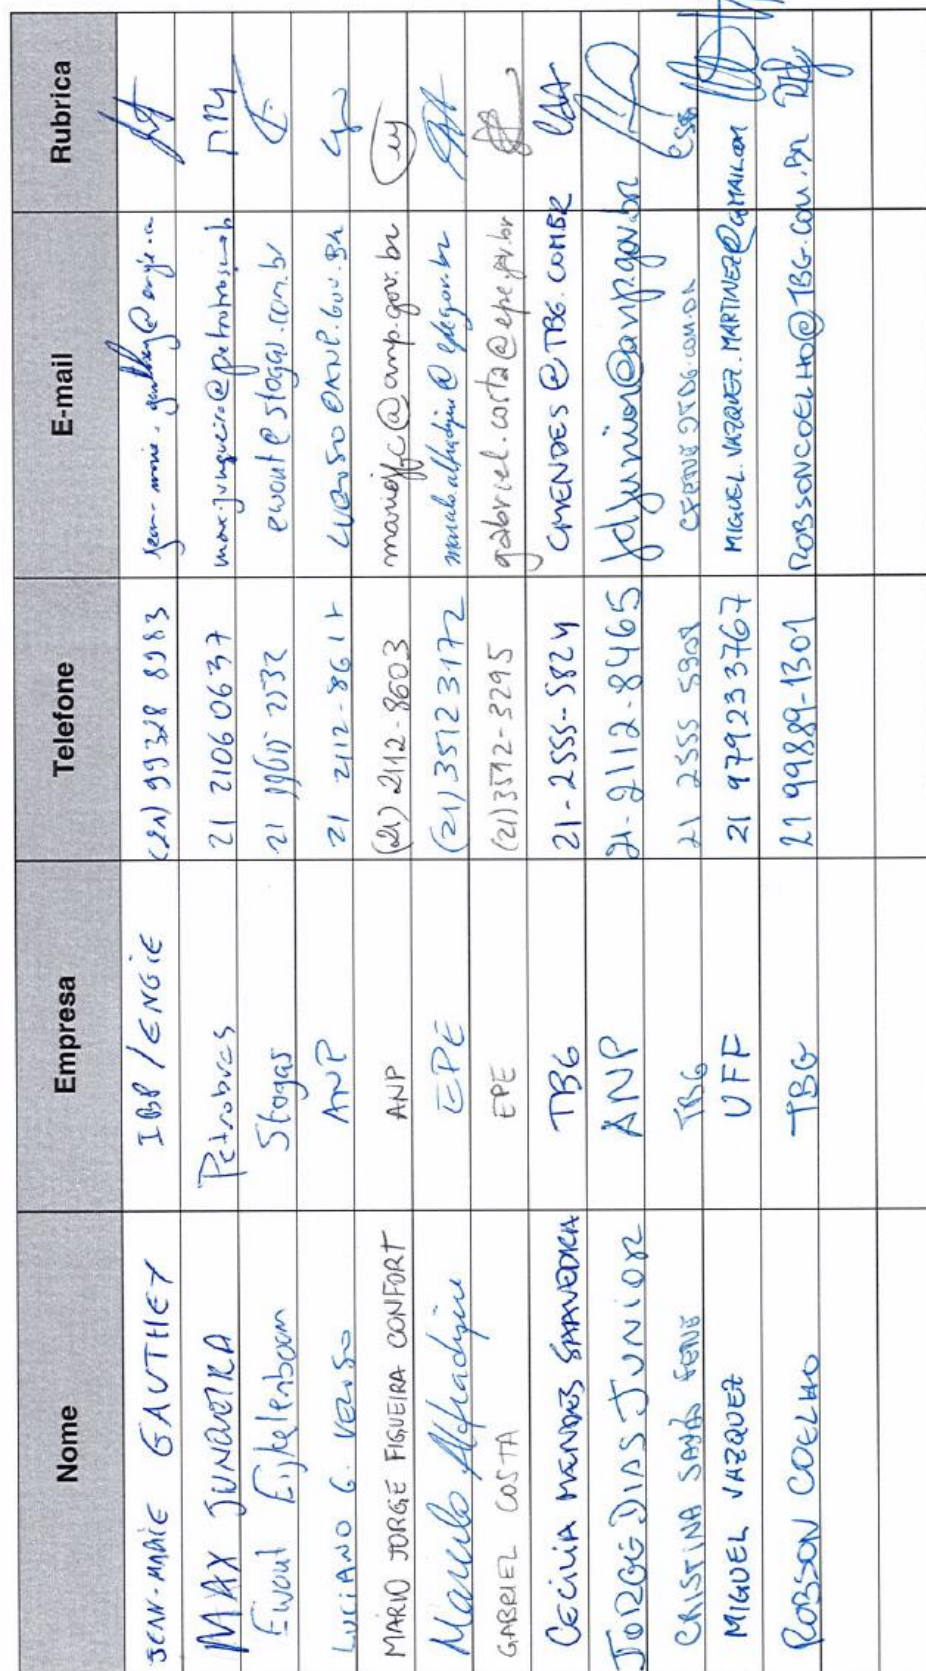 Nome Empresa Telefone E-mail Rubrica
JEAN-MARIE GAUTHEY IBP/ENGIE (21) 99328 8983
MAX JUNQUEIRA Petrobras 21 21060637
Ewout Eijkelenboom Stogas 21 ewout@stogas.com.br
LUCIANO G. VELOSO ANP 21 2112-8617
MARIO JORGE FIGUEIRA CONFORT ANP (21) 2112-8603 mariojfc@anp.gov.br
Marcelo Alfradique EPE (21) 3512 3172 marcelo.alfradique@epe.gov.br
GABRIEL COSTA EPE (21) 3512-3295 gabriel.costa@epe.gov.br
CECILIA MENDES SAAVEDRA TBG 21-2555-5824 CMENDES@TBG.COM.BR
JORGE DIAS JUNIOR ANP 21-2112-8465 jdjunior@anp.gov.br
CRISTINA SAYÃO TBG 21 2555
MIGUEL VAZQUEZ UFF 21 979233767 MIGUEL.VAZQUEZ.MARTINEZ@GMAIL.COM
ROBSON COELHO TBG 21 99889-1301 ROBSONCOELHO@TBG.COM.BR